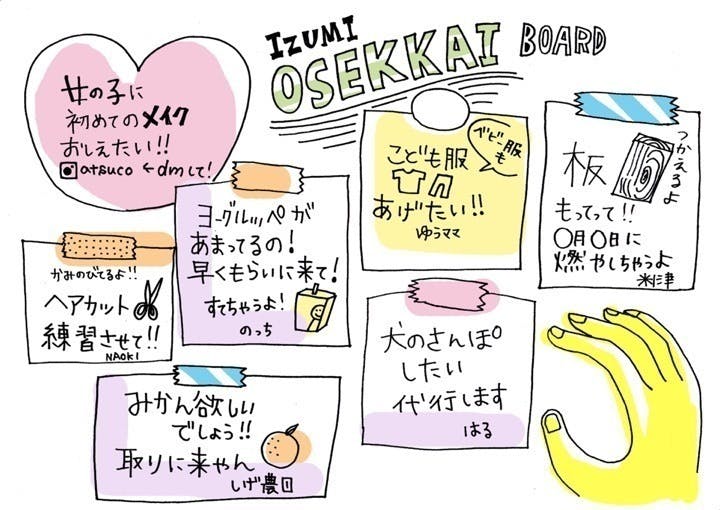 IZUMI
OSEKKAI BOARD
女の子に
初めてのメイク
おしえたい!!
atsuco ←dmして!
ヨーグルッペが
あまってるの!
早くもらいに来て!
すてちゃうよ!
のっち
こども服
ベビー服も
あげたい!!
ゆうママ
板
つかえるよ
もってって!!
〇月〇日に
燃やしちゃうよ
米津
かみのびてるよ!!
ヘアカット
練習させて!!
NAOKI
犬のさんぽ
したい
代行します
はる
みかん欲しい
でしょう!!
取りに来やん
しげ農口